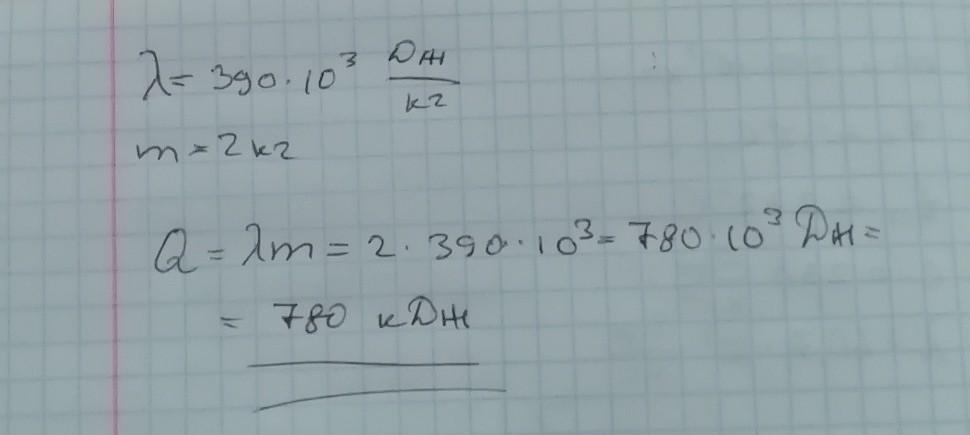 λ = 390 · 10³ Дж/кг
m = 2 кг
Q = λm = 2 · 390 · 10³ = 780 · 10³ Дж =
= 780 кДж